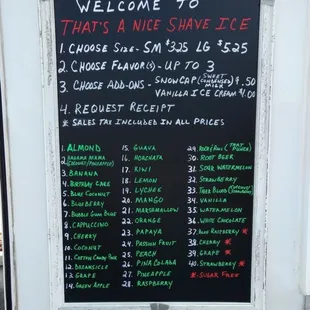 WELCOME TO
THAT'S A NICE SHAVE ICE
1. CHOOSE SIZE - SM $3.25 LG $5.25
2. CHOOSE FLAVOR(S) - UP TO 3
3. CHOOSE ADD-ONS - SNOWCAP (SWEET CONDENSED MILK) $.50
VANILLA ICE CREAM $1.00
4. REQUEST RECEIPT
* SALES TAX INCLUDED IN ALL PRICES
1. ALMOND
2. BAHAMA MAMA
(COCONUT/PINEAPPLE)
3. BANANA
4. BIRTHDAY CAKE
5. BLUE COCONUT
6. BLUEBERRY
7. BUBBLE GUM BLUE
8. CAPPUCCINO
9. CHERRY
10. COCONUT
11. COTTON CANDY PINK
12. DREAMSICLE
13. GRAPE
14. GREEN APPLE
15. GUAVA
16. HORCHATA
17. KIWI
18. LEMON
19. LYCHEE
20. MANGO
21. MARSHMALLOW
22. ORANGE
23. PAPAYA
24. PASSION FRUIT
25. PEACH
26. PINA COLADA
27. PINEAPPLE
28. RASPBERRY
29. ROCK/POG (THAT POWER)
30. ROOT BEER
31. SOUR WATERMELON
32. STRAWBERRY
33. TIGER BLOOD (COCONUT/STRAWBERRY)
34. VANILLA
35. WATERMELON
36. WHITE CHOCOLATE
37. BLUE RASPBERRY *
38. CHERRY *
39. GRAPE *
40. STRAWBERRY *
* SUGAR FREE